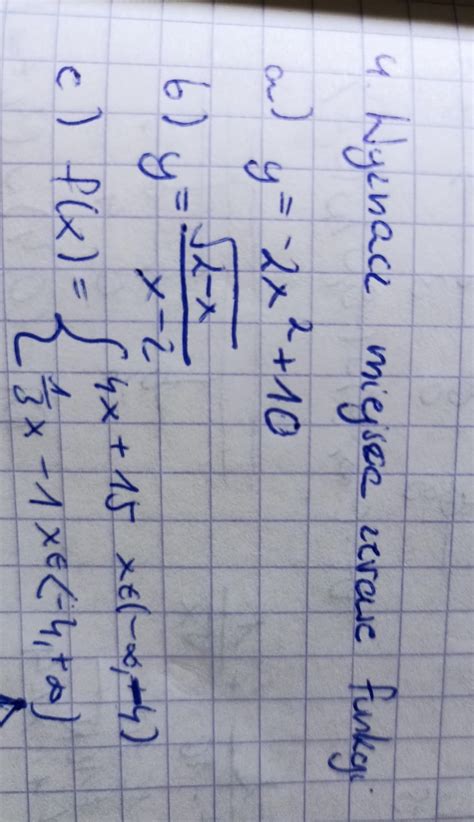 4. Wyznacz miejsce zerowe funkcji
a) y = -2x² + 10
b) y = √(2-x) / (x-2)
c) f(x) = { 4x + 15 x∈(-∞, -4)
{ 1/3 x - 1 x∈<-4, +∞)